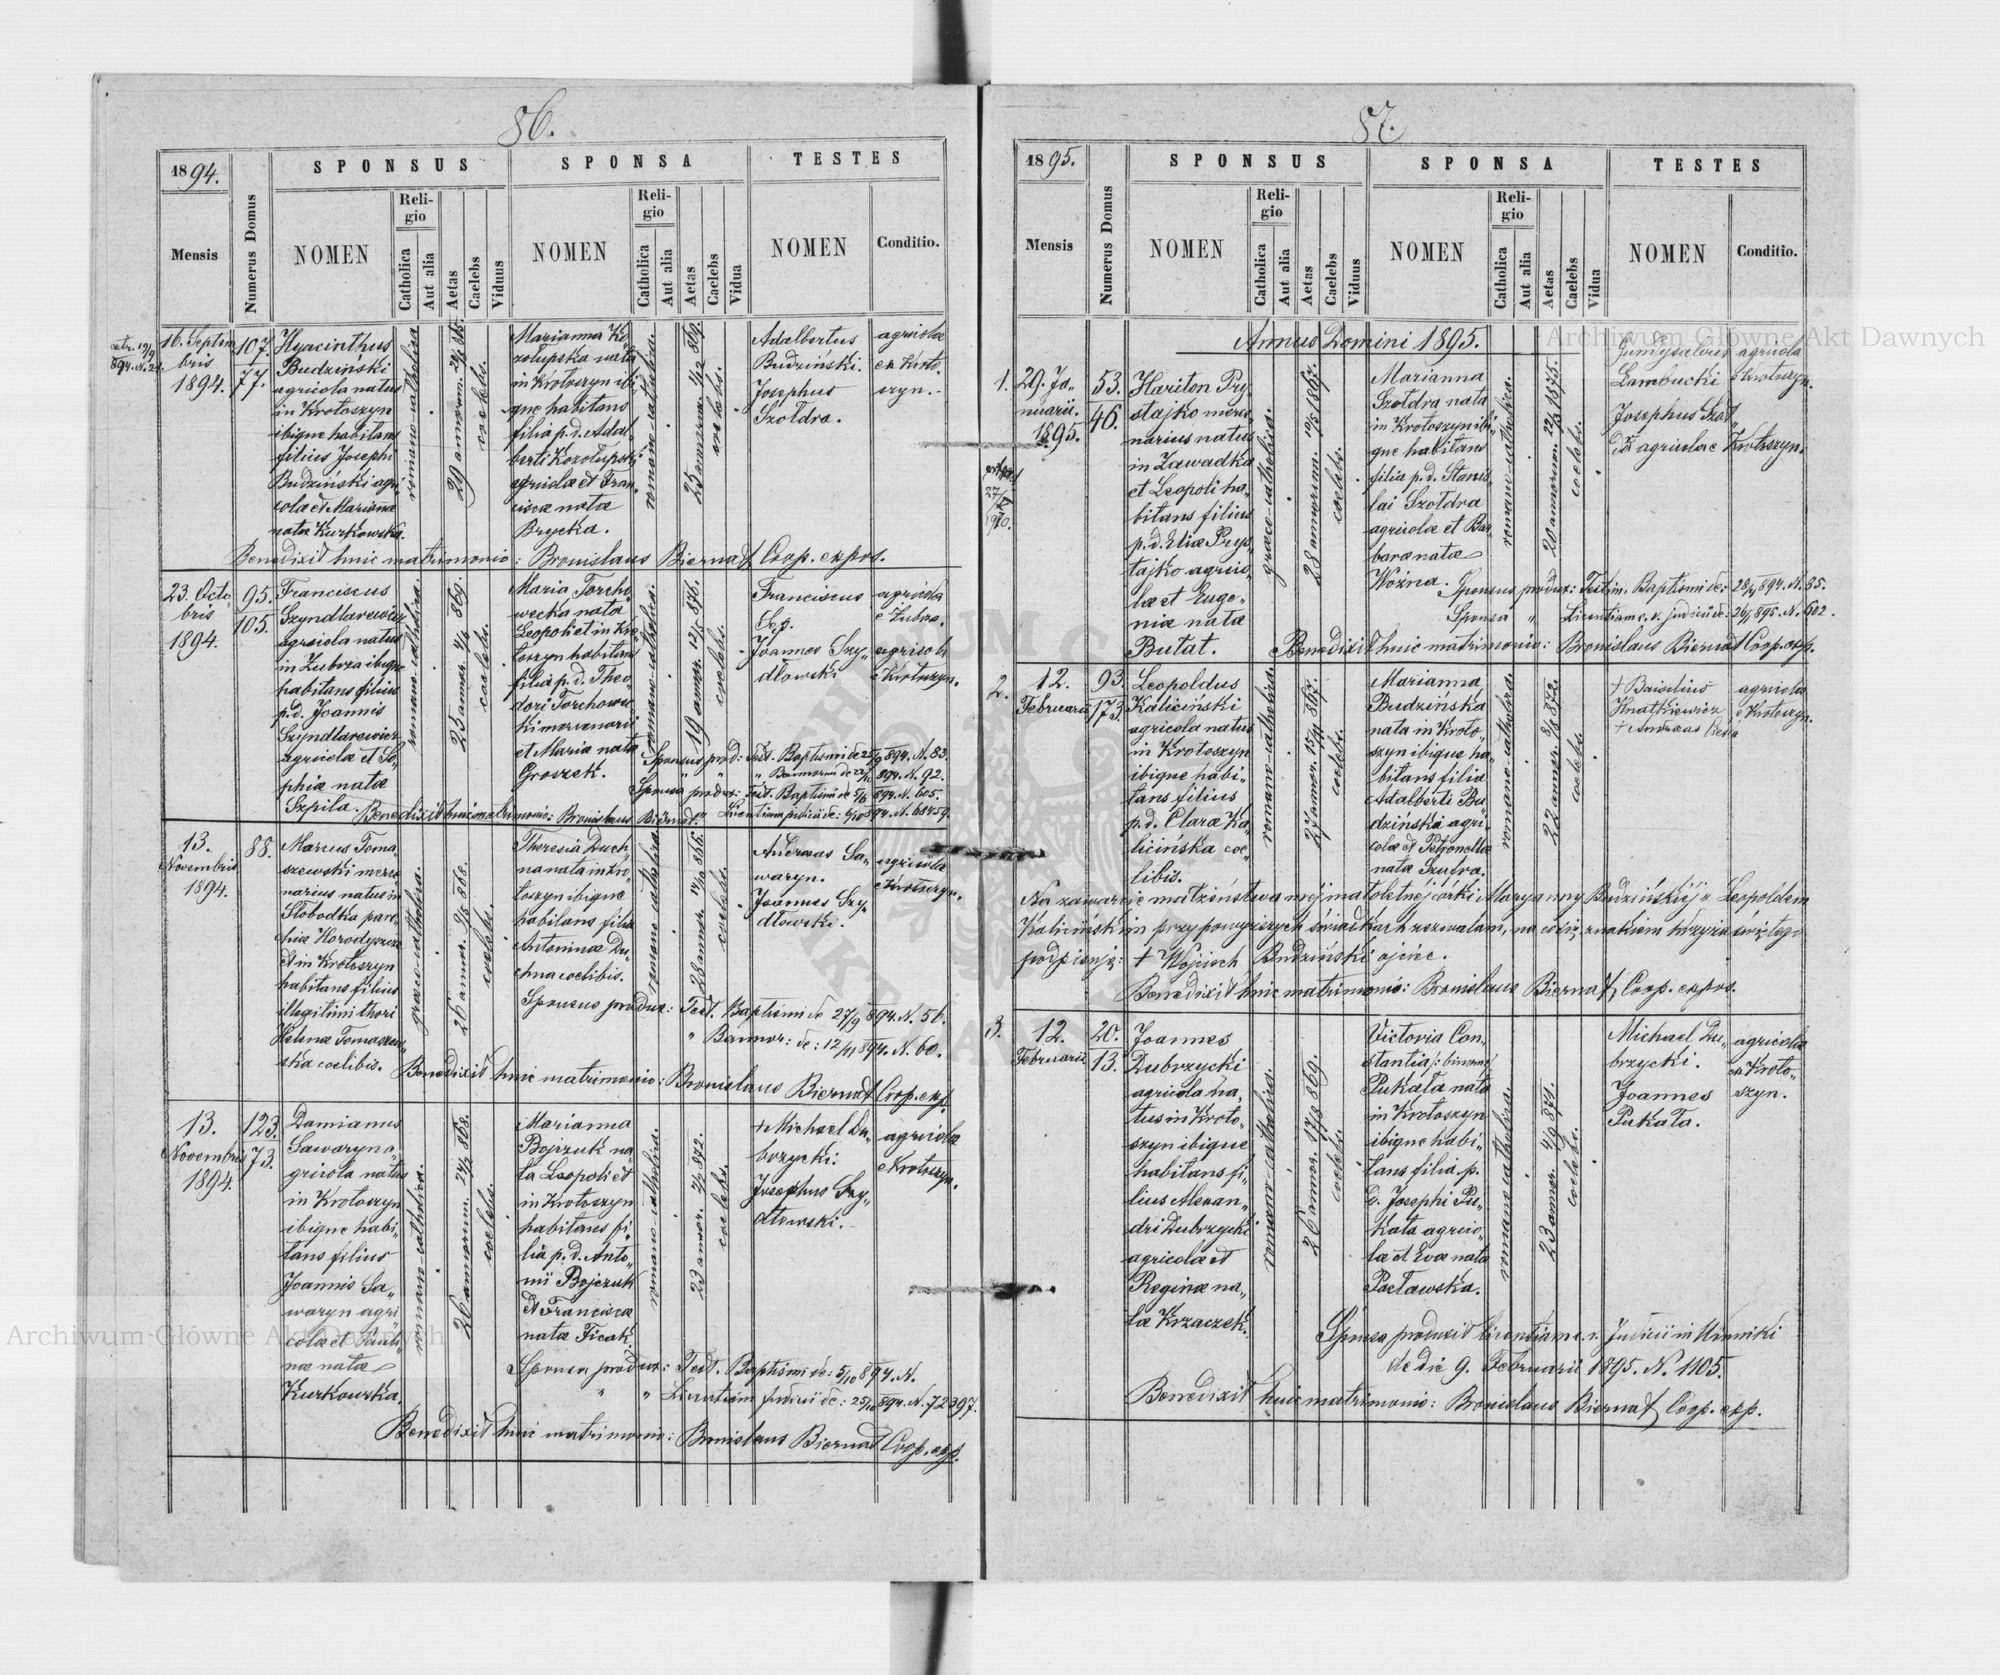 86.
1894.
SPONSUS
SPONSA
TESTES
Mensis
Numerus Domus
NOMEN
Religio
Catholica
Aut alia
Aetas
Caelebs
Viduus
NOMEN
Religio
Catholica
Aut alia
Aetas
Caelebs
Vidua
NOMEN
Conditio.
16. Septem
bris
1894.
107.
77.
Hyacinthus
Budziński
agricola natus
in Krotoszyn
ibique habitans
filius Josephi
Budziński agri
cola et Marianna
nata Kurkowska.
romano-catholica
29 annorum
coelebs.
Marianna Ko
zołupska nata
in Krotoszyn ibi
que habitans
filia p.d. Adal
berti Kozołupski
agricolæ et Fran
ciscæ nata
Brycka.
romano-catholica.
25 annorum
coelebs.
Adalbertus
Budziński.
Josephus
Szołdra.
agricolæ
ex Kroto
szyn.
Benedixit huic matrimonio: Bronislaus Biernat Coop. expos.
23. Octo
bris
1894.
95.
105.
Franciscus
Szyndlarewicz
agricola natus
in Zubrza ibique
habitans filius
p.d. Joannis
Szyndlarewicz
agricolæ et So
phiæ natæ
Szpila.
romano-catholica.
25 annor.
coelebs.
Maria Torcho
wecka nata
Leopoli et in Kro
toszyn habitans
filia p.d. Theo
dori Torchowec
ki mercenarii
et Maria nata
Groszek.
romano-catholica
19 annor.
coelebs.
Franciscus
Joannes Szy„
dłowski
agricola
e Zubrza.
agricola
e Krotoszyn.
Sponsus prod: Test. Baptismi de 894. N. 83.
„ „ Bannorum de 894. N. 92.
Sponsa produx: Test. Baptismi de 894. N. 605.
Licentiam judicii de: 894. N. 68459.
Benedixit huic matrimonio: Bronislaus Biernat
13.
Novembris
1894.
88.
Marcus Toma„
szewski merce
narius natus in
Słobodka paro„
chiæ Horodyszcze
et in Krotoszyn
habitans filius
illegitimi thori
Helenæ Tomaszew„
ska coelibis.
græco-catholica.
26 annor.
coelebs.
Theresia Duch
na nata in Kro
toszyn ibique
habitans filia
Antoninæ Du
chna coelibis.
romano-catholica
28 annor.
coelebs.
Andreas Sa„
waryn.
Joannes Szy„
dłowski.
agricolæ
e Krotoszyn.
Sponsus produx: Test. Baptismi de 27/9 894. N. 56.
„ Bannor: de: 12/11 894. N. 60.
Benedixit huic matrimonio: Bronislaus Biernat Coop. exp.
13.
Novembris
1894.
123.
73.
Damianus
Sawaryn a„
gricola natus
in Krotoszyn
ibique habi„
tans filius
Joannis Sa„
waryn agri
colæ et Pauli
næ natæ
Kurkowska.
romano-catholica.
26 annorum.
coelebs.
Marianna
Bojczuk na„
ta Leopoli et
in Krotoszyn
habitans fi„
lia p.d. Anto„
nii Bojczuk
et Francisca
natæ Ficak.
romano-catholica.
23 annor.
coelebs.
+ Michael Du„
brzycki.
Josephus Szy„
dłowski.
agricolæ
e Krotoszyn.
Sponsa produx: Test. Baptismi de: 5/10 894. N.
„ „ Licentiam judicii de: 25/10 894. N. 72397.
Benedixit huic matrimonio: Bronislaus Biernat Coop. exp.
87.
1895.
SPONSUS
SPONSA
TESTES
Mensis
Numerus Domus
NOMEN
Religio
Catholica
Aut alia
Aetas
Caelebs
Viduus
NOMEN
Religio
Catholica
Aut alia
Aetas
Caelebs
Vidua
NOMEN
Conditio.
Annus Domini 1895.
1.
29. Ja„
nuarii.
1895.
53.
46.
Hariton Pry„
stajko merce„
narius natus
in Zawadka
et Leopoli ha„
bitans filius
p.d. Eliæ Prys„
tajko agrico„
læ et Euge„
niæ nata
Butat.
græco-catholica.
28 annorum.
coelebs.
Marianna
Szołdra nata
in Krotoszyn ibi„
que habitans
filia p.d. Stanis„
lai Szołdra
agricolæ et Bar„
baræ natæ
Woźna.
romano-catholica.
20 annorum.
coelebs.
Lambucki
Josephus Szoł„
dra agricolae
agricola
e Krotoszyn.
Krotoszyn.
Sponsus produx: Testim. Baptismi de: 894. N. 85.
Sponsa „ Licentiam c.k. judicii de: 26/1 895. N. 602.
Benedixit huic matrimonio: Bronislaus Biernat Coop. exp.
2.
12.
Februarii
93.
173.
Leopoldus
Kaliciński
agricola natus
in Krotoszyn
ibique habi„
tans filius
p.d. Claræ Ka„
licinska coe„
libis.
romano-catholica.
27 annor.
coelebs.
Marianna
Budzińska
nata in Kroto„
szyn ibique ha„
bitans filia
Adalberti Bu„
dzińska agri„
colæ et Petronella
nata Szufra.
romano-catholica.
22 annor.
coelebs.
+ Basilius
Hnatkiewicz
+ Andreas
agricolæ
e Krotoszyn.
Na zawarcie małżeństwa mojej małoletniéj córki Maryanny Budzińskiéj z Leopoldem
Kalicińskim przy powyższych świadkach zezwalam, na co się znakiem krzyża świętego
podpisuję: + Wojciech Budziński ojciec.
Benedixit huic matrimonio: Bronislaus Biernat Coop. expos.
3.
12.
Februarii
20.
13.
Joannes
Dubrzycki
agricola na„
tus in Kroto„
szyn ibique
habitans fi„
lius Alexan„
dri Dubrzycki
agricolæ et
Reginæ na„
tæ Krzaczek.
romano-catholica.
26 annor.
coelebs.
Victoria Con„
stantia
Pukała nata
in Krotoszyn
ibique habi„
tans filia p.
d. Josephi Pu„
kała agrico„
læ et Evæ nata
Pacławska.
romano catholica.
23 annor.
coelebs.
Michael Du„
brzycki.
Joannes
Pukała.
agricolæ
ex Kroto„
szyn.
Sponsa produxit licentiam c. r. Judicii in Winniki
de die 9. Februarii 1895. N. 1105.
Benedixit huic matrimonio: Bronislaus Biernat Coop. exp.
Archiwum Główne Akt Dawnych
Archiwum Główne Akt Dawnych